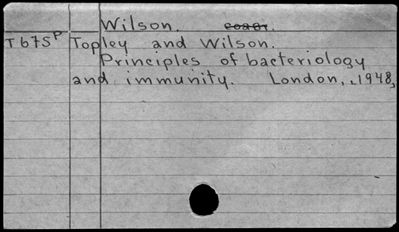 Wilson.
T675P Topley and Wilson.
Principles of bacteriology
and immunity. London, 1948,